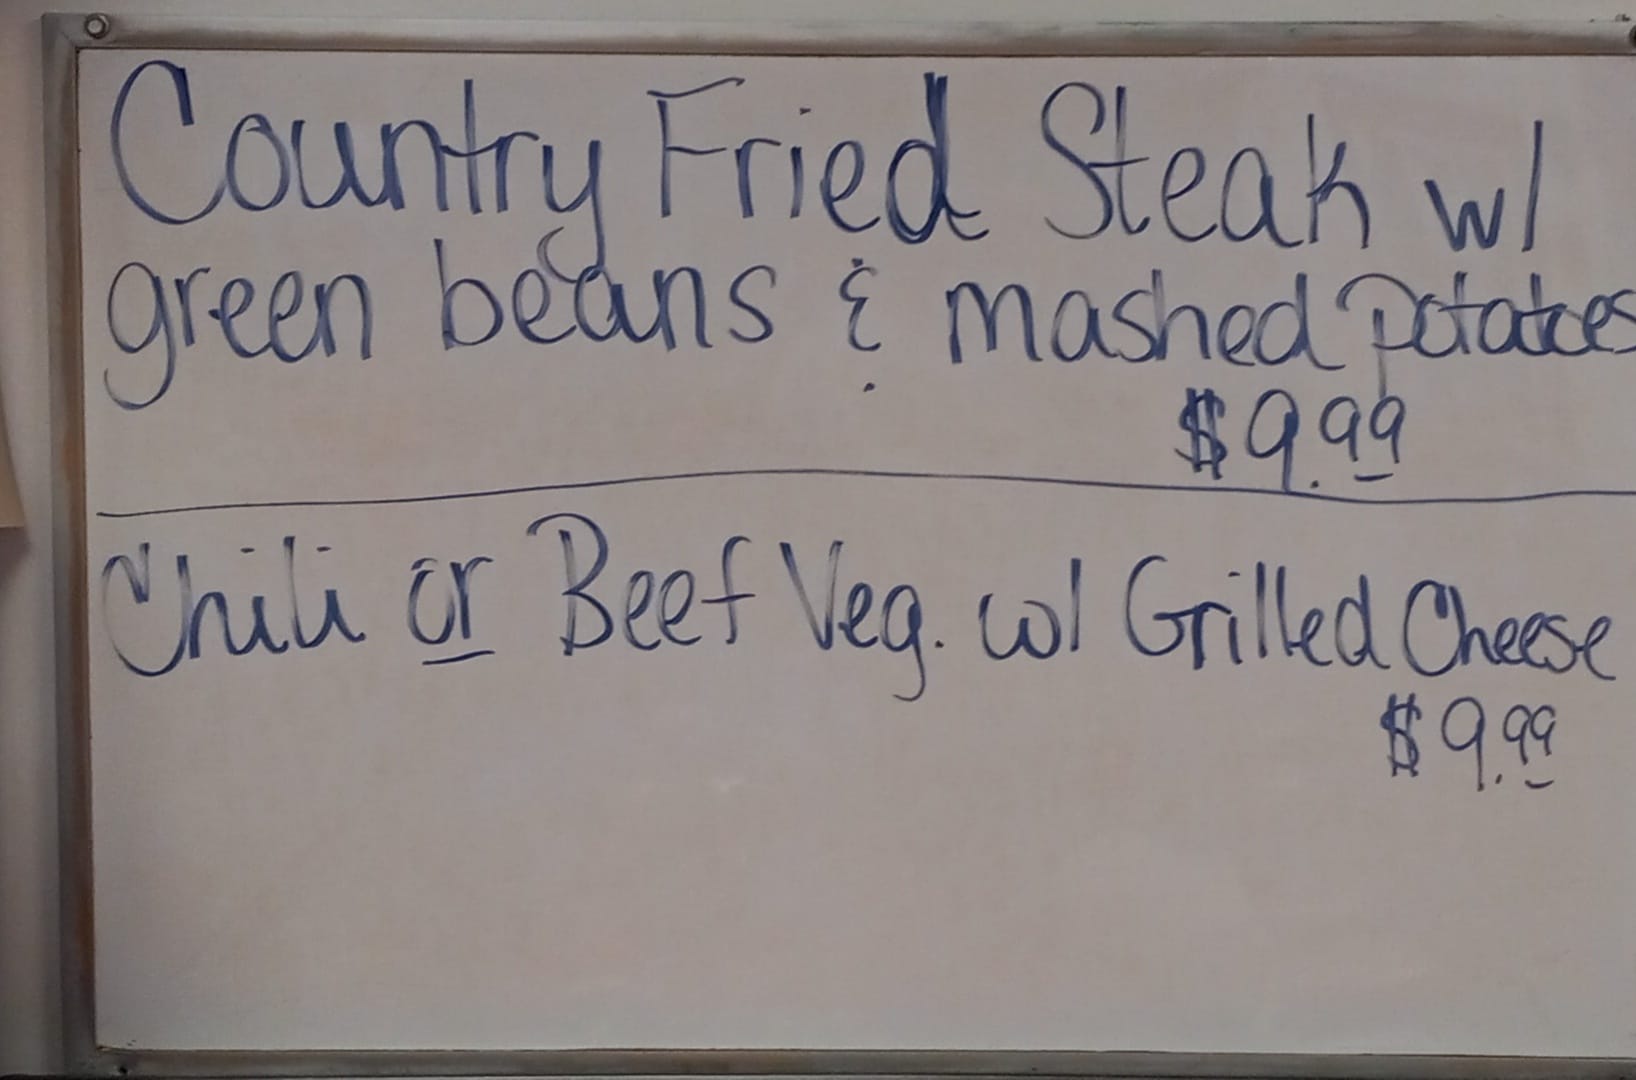 Country Fried Steak w/
green beans & mashed potatoes
$9.99
Chili or Beef Veg. w/ Grilled Cheese
$9.99